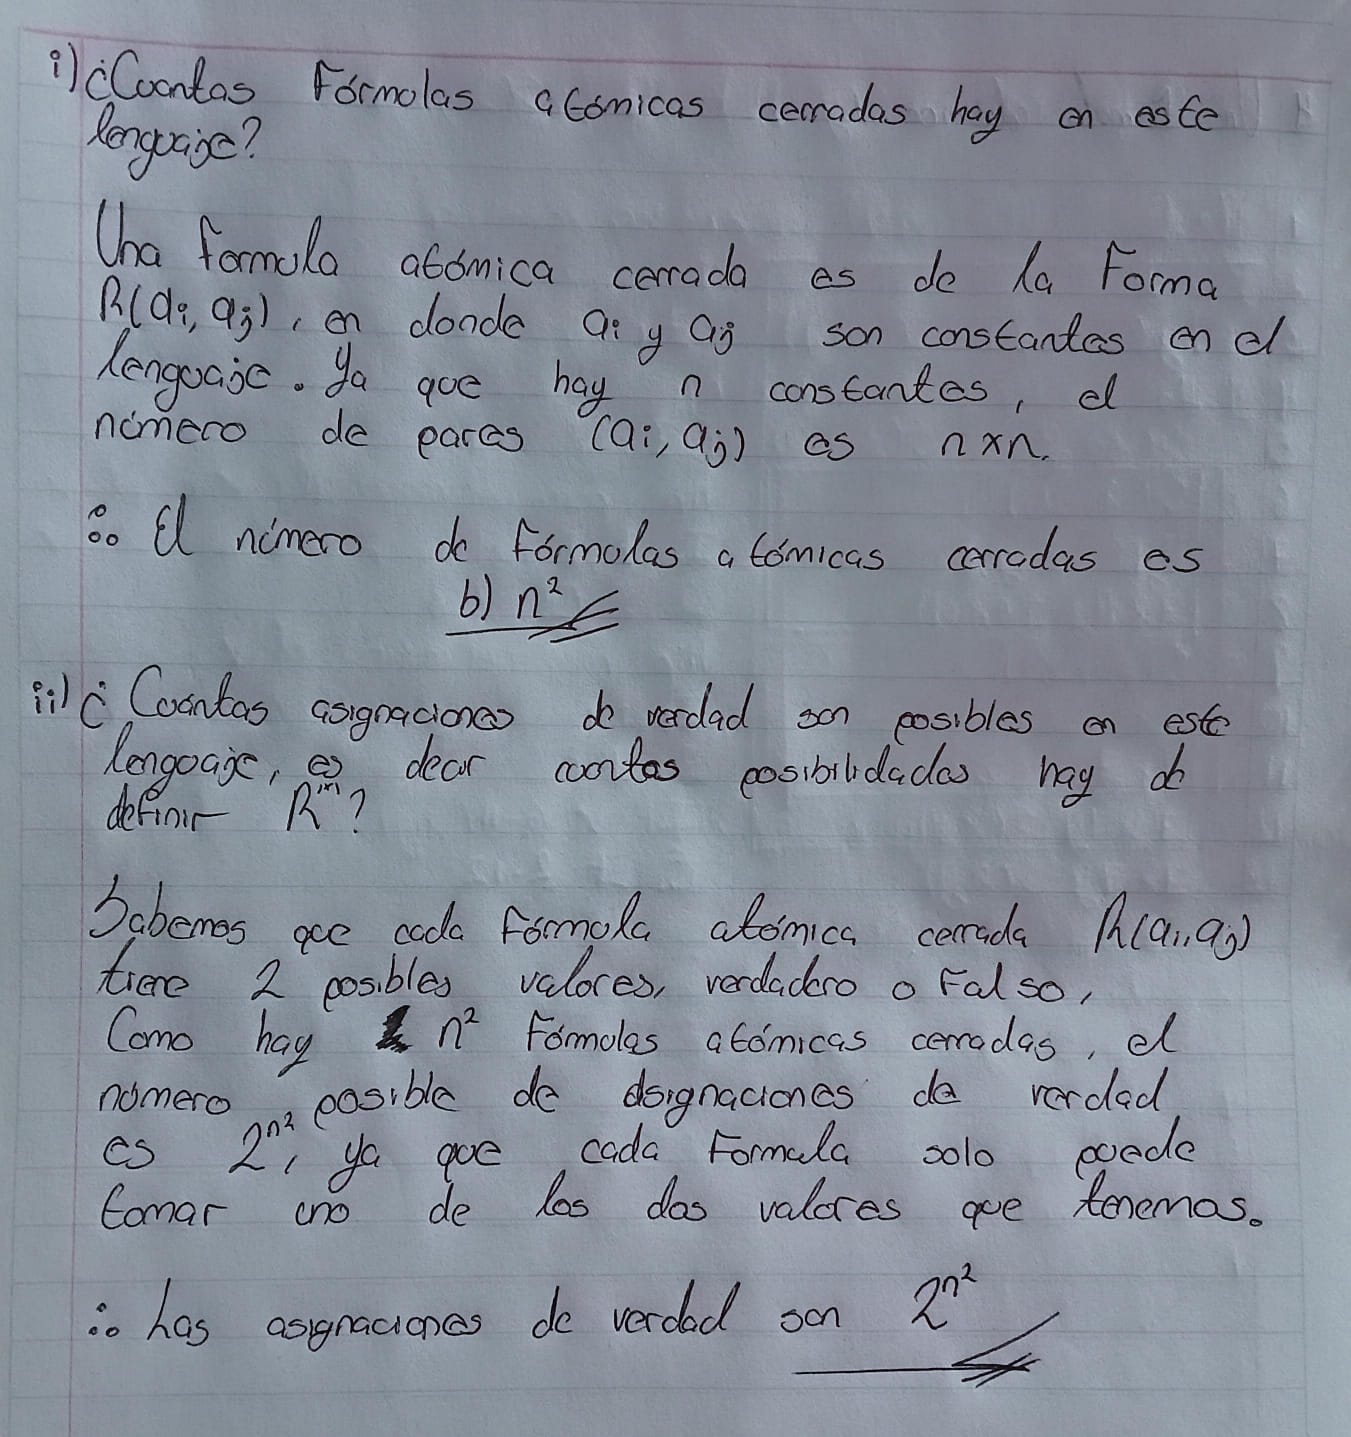 i) ¿Cuantas Fórmulas atómicas cerradas hay en este
lenguaje?
Una formula atómica cerrada es de la Forma
R(ai, aj), en donde ai y aj son constantes en el
lenguaje. Ya que hay n constantes, el
número de pares (ai, aj) es n x n.
∴ El número de Fórmulas atómicas cerradas es
b) n²
ii) ¿Cuántas asignaciones de verdad son posibles en este
lenguaje, es decir cuantas posibilidades hay de
definir R^m?
Sabemos que cada Fórmula atómica cerrada R(ai, aj)
tiene 2 posibles valores, verdadero o Falso,
Como hay n² Fórmulas atómicas cerradas, el
número posible de asignaciones de verdad
es 2^n², ya que cada Formula solo puede
tomar uno de los dos valores que tenemos.
∴ Las asignaciones de verdad son 2^n²